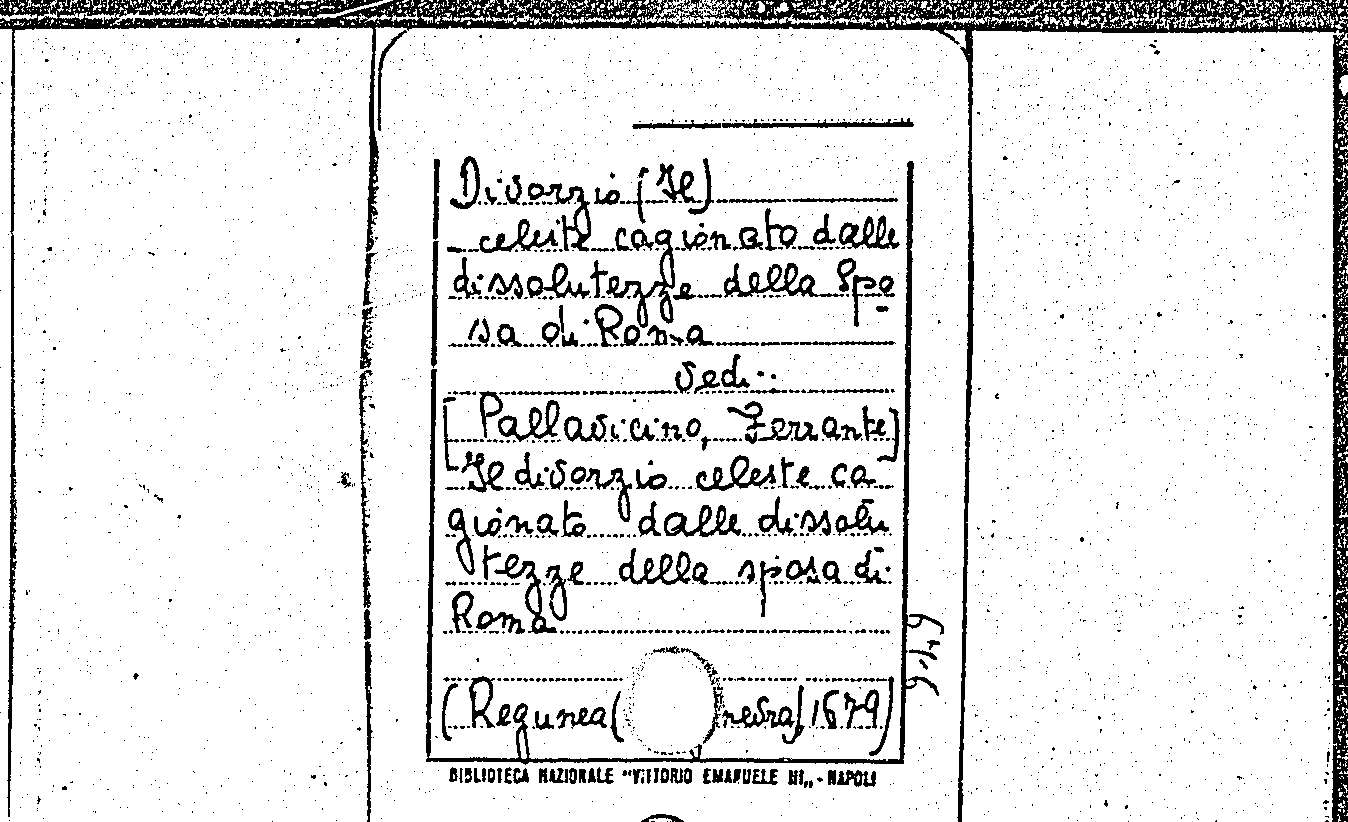 Divorzio (Il)
_ celeste cagionato dalle
dissolutezze della Spo
sa di Roma
Vedi..
[Pallavicino, Ferrante]
Il divorzio celeste ca
gionato dalle dissolu
tezze della sposa di
Roma
(Regunea( nevra) 1679)
BIBLIOTECA NAZIONALE "VITTORIO EMANUELE III„ - NAPOLI